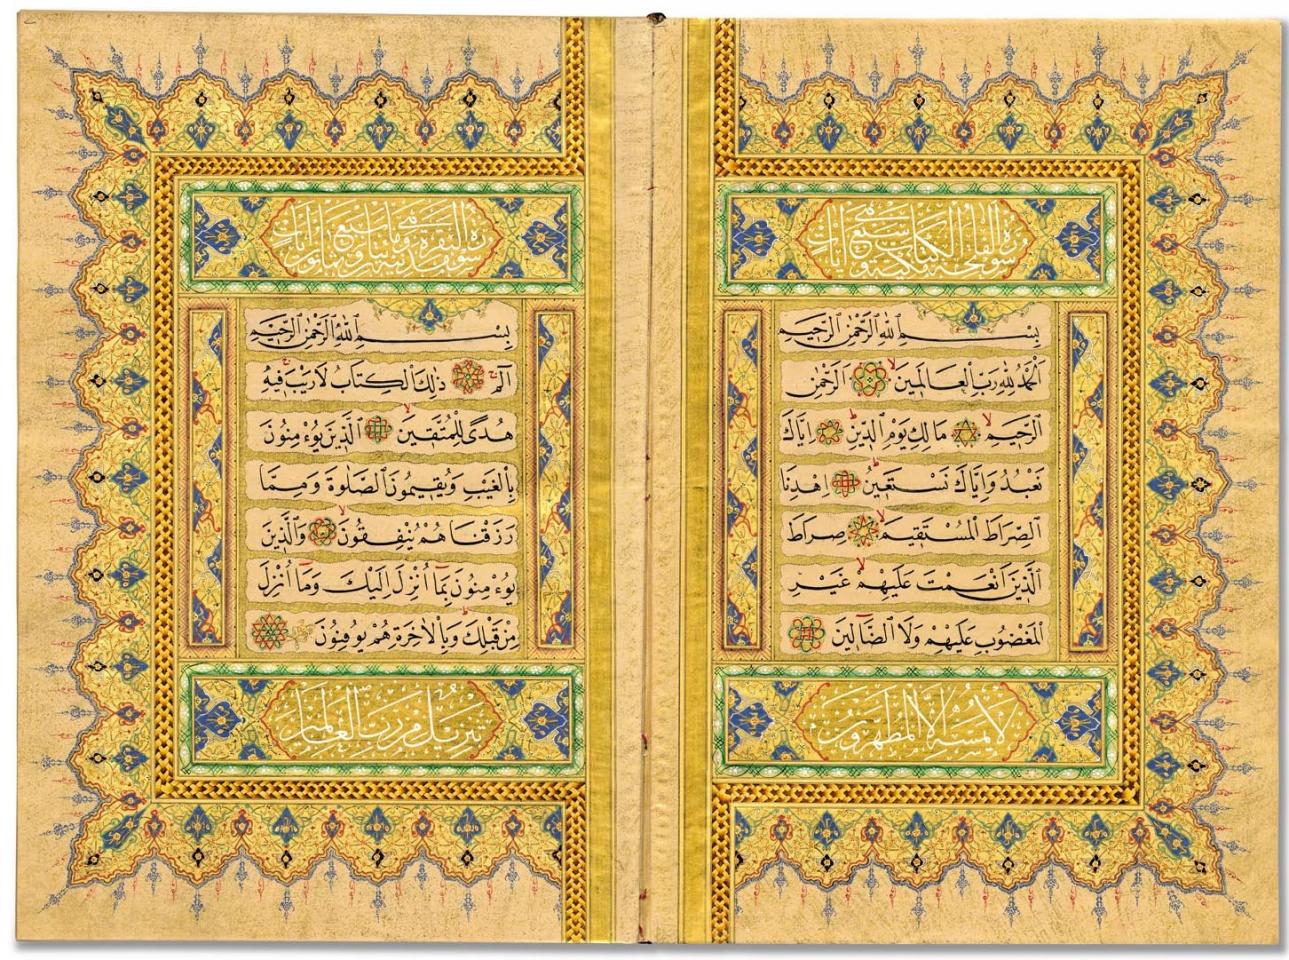 سورة الفاتحة الكتاب سبع آيات وهي مكية
بِسْمِ ٱللهِ ٱلرَّحْمٰنِ ٱلرَّحِيمِ
اَلْحَمْدُ لِلهِ رَبِّ ٱلْعَالَمِينَ ۙ اَلرَّحْمٰنِ
ٱلرَّحِيمِ ۙ مَالِكِ يَوْمِ ٱلدِّينِ ۜ اِيَّاكَ
نَعْبُدُ وَاِيَّاكَ نَسْتَعِينُ ۜ اِهْدِنَا
ٱلصِّرَاطَ ٱلْمُسْتَقِيمَ ۙ صِرَاطَ
ٱلَّذِينَ اَنْعَمْتَ عَلَيْهِمْ ۙ غَيْرِ
ٱلْمَغْضُوبِ عَلَيْهِمْ وَلَا ٱلضَّٓالِّينَ
لا يمسه الا المطهرون
سورة البقرة
بِسْمِ ٱللهِ ٱلرَّحْمٰنِ ٱلرَّحِيمِ
الٓمٓ ذٰلِكَ ٱلْكِتَابُ لَا رَيْبَ ۛ فِيهِ
هُدًى لِلْمُتَّقِينَ ۙ اَلَّذِينَ يُؤْمِنُونَ
بِٱلْغَيْبِ وَيُقِيمُونَ ٱلصَّلٰوةَ وَمِمَّا
رَزَقْنَاهُمْ يُنْفِقُونَ ۙ وَٱلَّذِينَ
يُؤْمِنُونَ بِمَٓا اُنْزِلَ اِلَيْكَ وَمَٓا اُنْزِلَ
مِنْ قَبْلِكَ وَبِٱلْاٰخِرَةِ هُمْ يُوقِنُونَ
تنزيل من رب العالمين